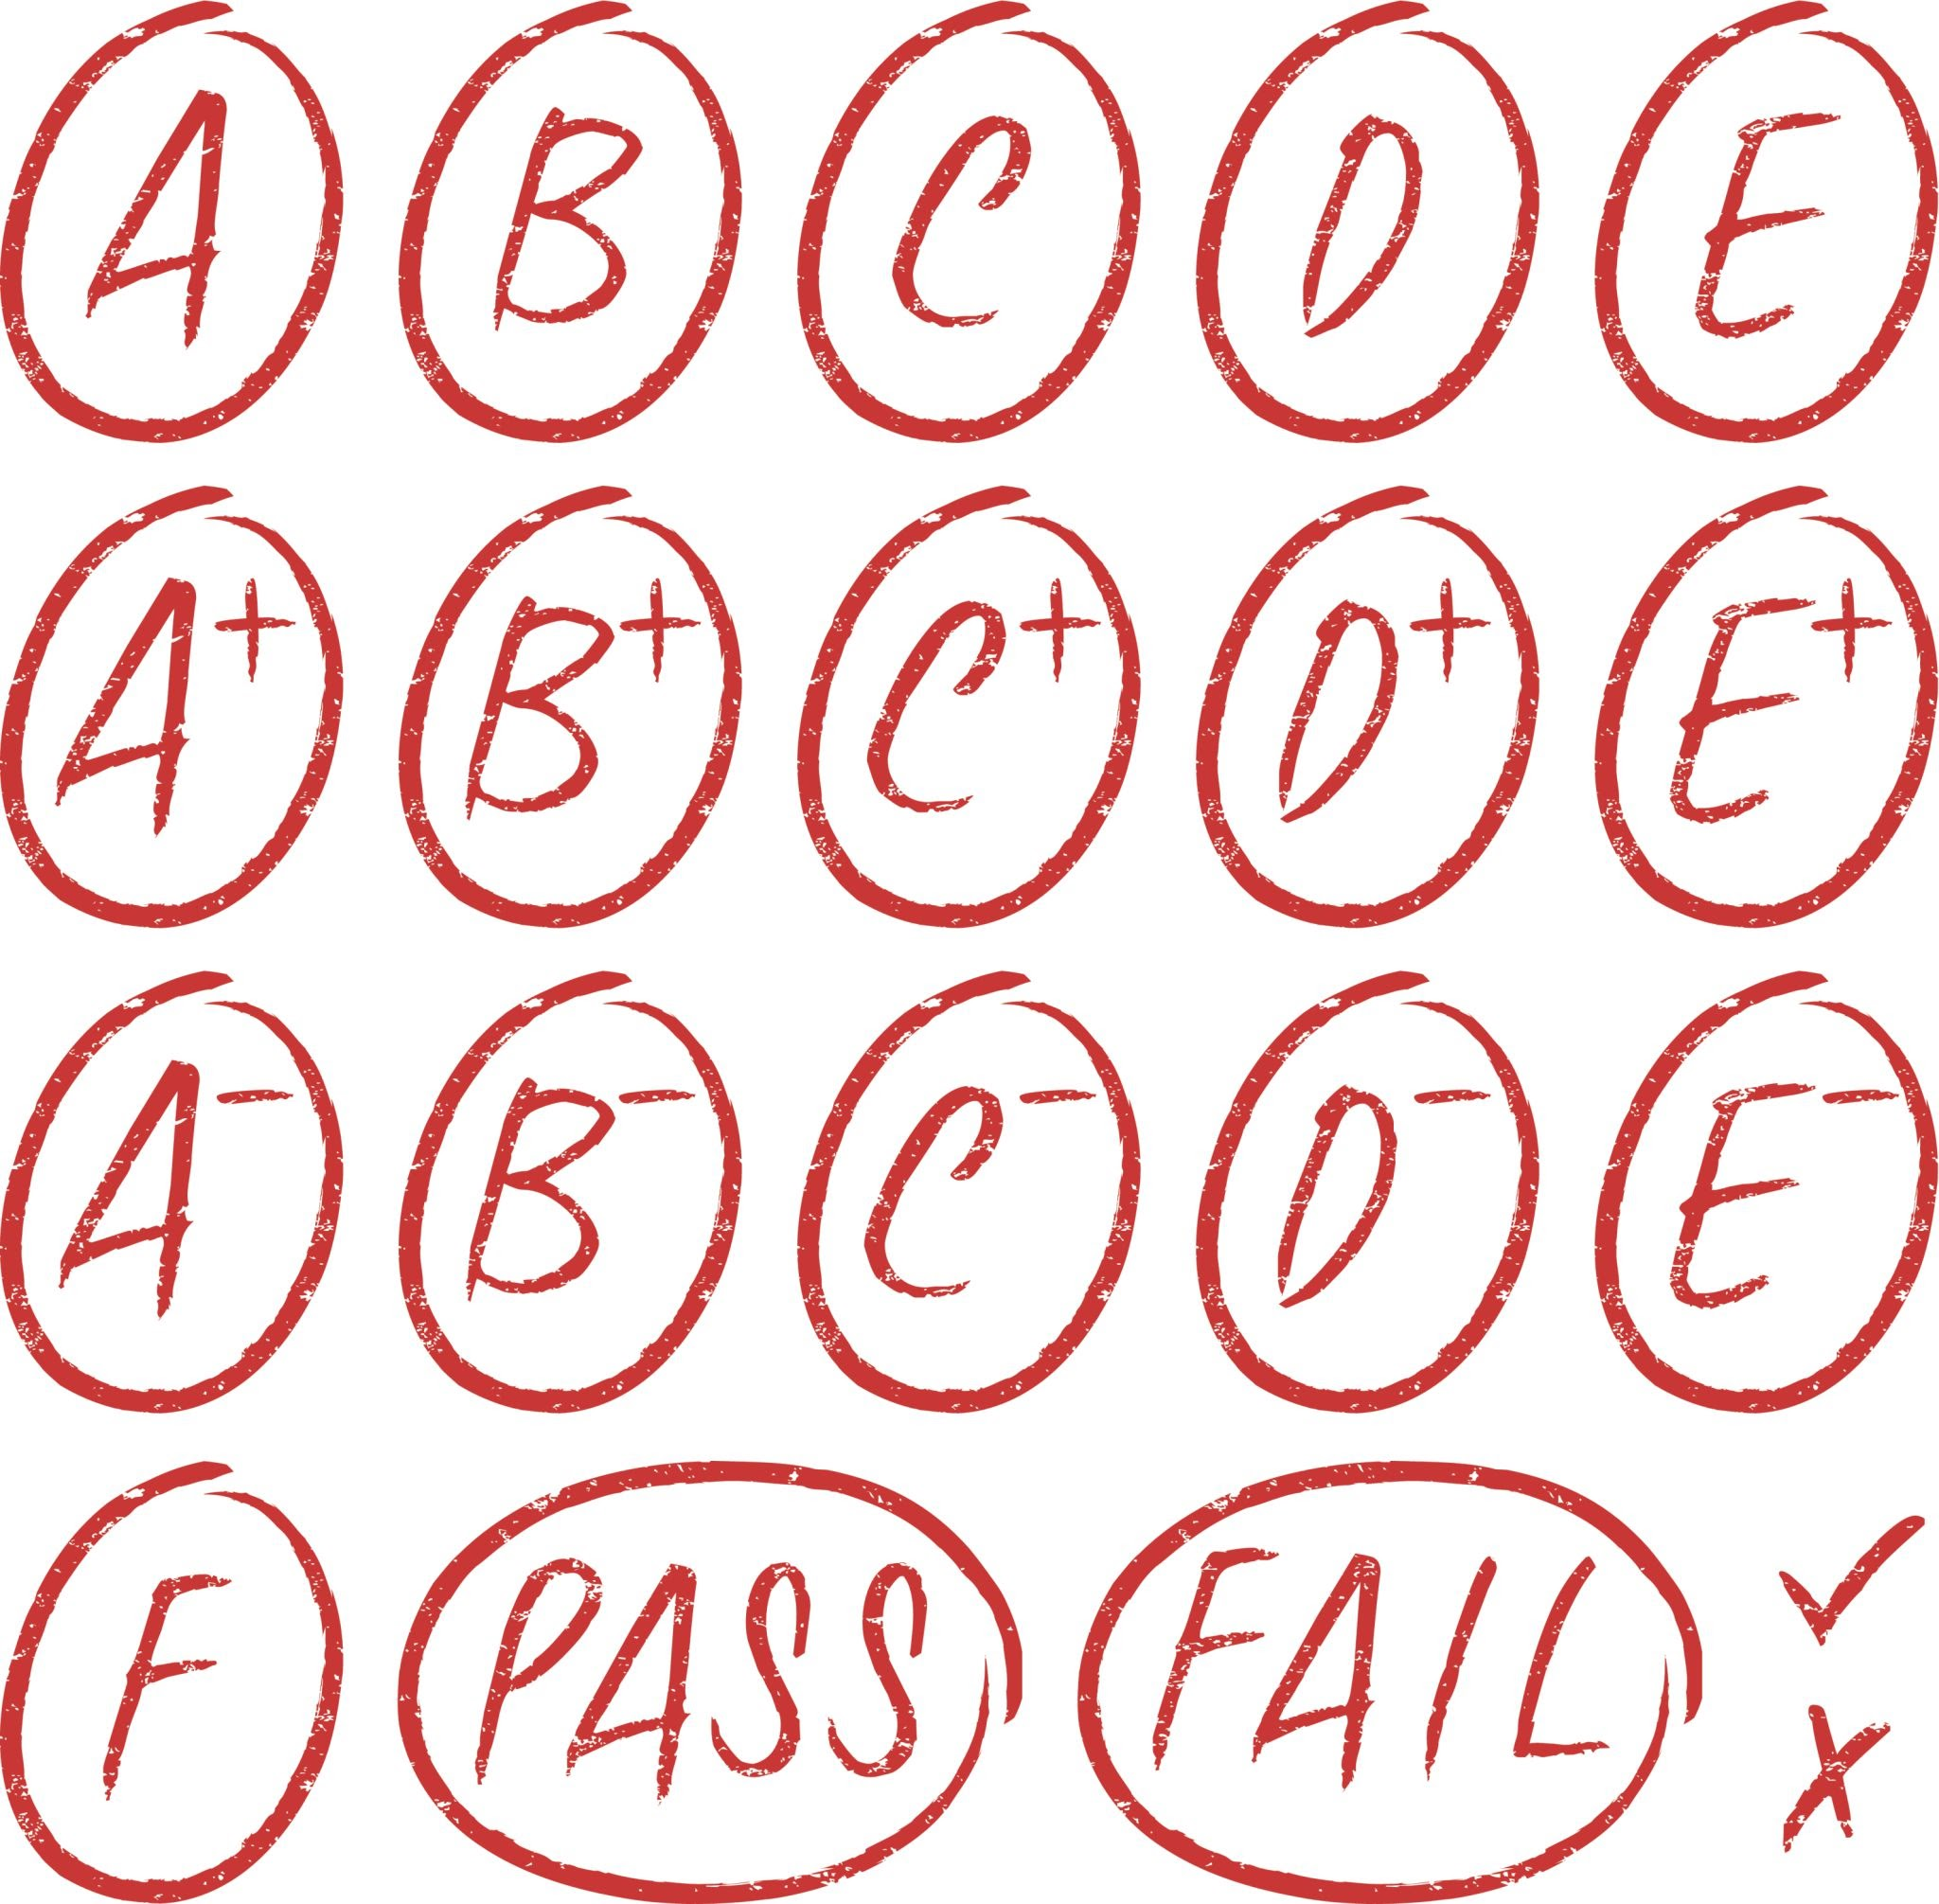 A B C D E
A+ B+ C+ D+ E+
A- B- C- D- E-
F PASS FAIL ✓
✗